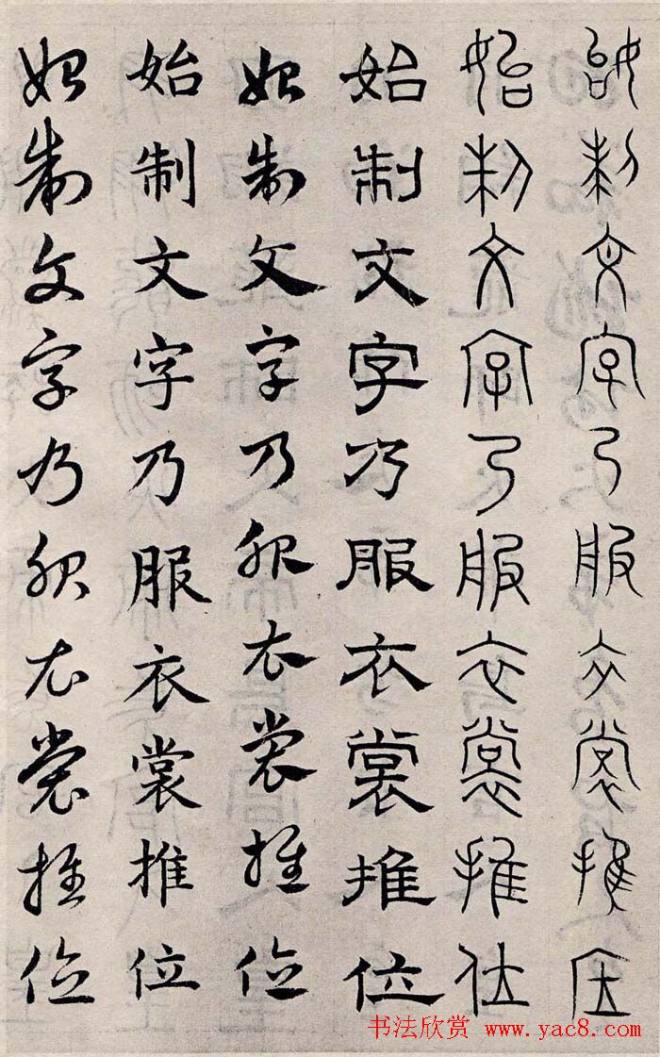 始制文字乃服衣裳推位
始制文字乃服衣裳推位
始制文字乃服衣裳推位
始制文字乃服衣裳推位
始制文字乃服衣裳推位
始制文字乃服衣裳推位
书法欣赏 www.yac8.com